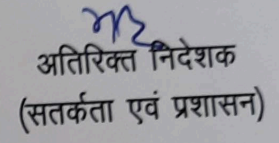 अतिरिक्त निदेशक
(सतर्कता एवं प्रशासन)